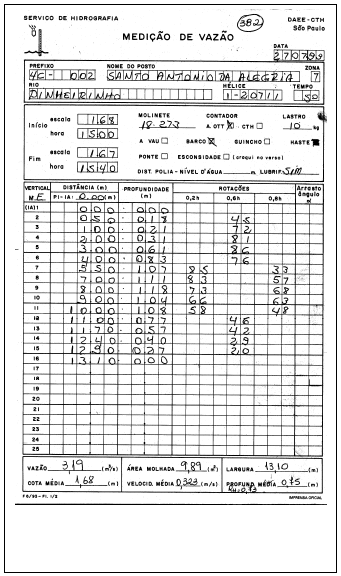 SERVIÇO DE HIDROGRAFIA 382 DAEE-CTH
São Paulo
MEDIÇÃO DE VAZÃO
DATA
270799
PREFIXO NOME DO POSTO ZONA
4C- 002 SANTO ANTONIO DA ALEGRIA 7
RIO HÉLICE TEMPO
PINHEIRINHO 1-20711 50
Início escala 168 MOLINETE CONTADOR LASTRO
hora 1500 18.273 A. OTT X - CTH 10 kg
A VAU BARCO X GUINCHO HASTE X
Fim escala 167 PONTE ESCONSIDADE (croqui no verso)
hora 1540 DIST. POLIA - NÍVEL D'ÁGUA m LUBRIF. SIM
VERTICAL DISTÂNCIA (m) PROFUNDIDADE ROTAÇÕES Arrasto
M.E. PI-IA: 0.00 (m) (m) 0,2h 0,6h 0,8h ângulo
(IA)1 0.00 0.00
2 0.50 0.18 45
3 1.00 0.21 72
4 2.00 0.31 81
5 3.00 0.61 86
6 4.00 0.83 76
7 5.50 1.07 85 33
8 7.00 1.11 83 57
9 8.00 1.18 73 68
10 9.00 1.04 66 63
11 10.00 1.08 58 48
12 11.00 0.77 46
13 11.70 0.57 42
14 12.40 0.40 29
15 12.90 0.27 20
16 13.10 0.00
17
18
19
20
21
22
23
24
25
VAZÃO 3,19 (m³/s) ÁREA MOLHADA 9,89 (m²) LARGURA 13,10 (m)
COTA MÉDIA 1,68 (m) VELOCID. MÉDIA 0,323 (m/s) PROFUND. MÉDIA 0,75 (m)
FG/90 - Fl. 1/2 IMPRENSA OFICIAL